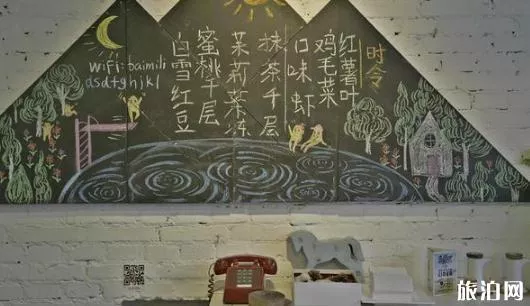 时令
红薯叶
鸡毛菜
口味虾
抹茶千层
茉莉茶冻
蜜桃千层
白雪红豆
wiFi:baimili
asdfghjkl
旅泊网